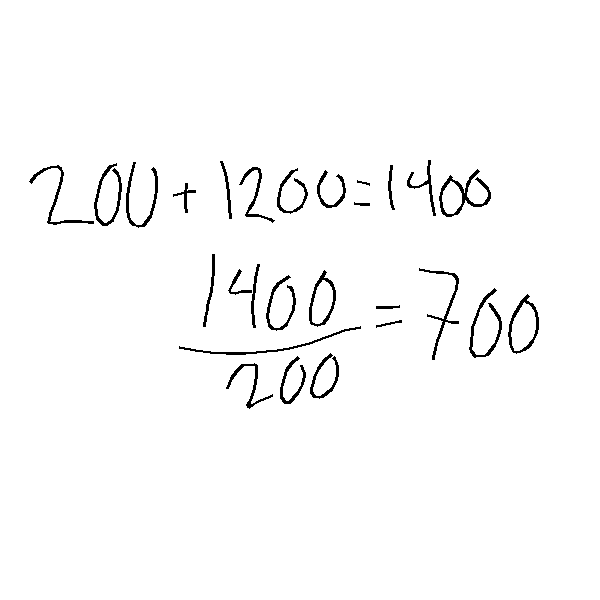 200 + 1200 = 1400
1400/200 = 700